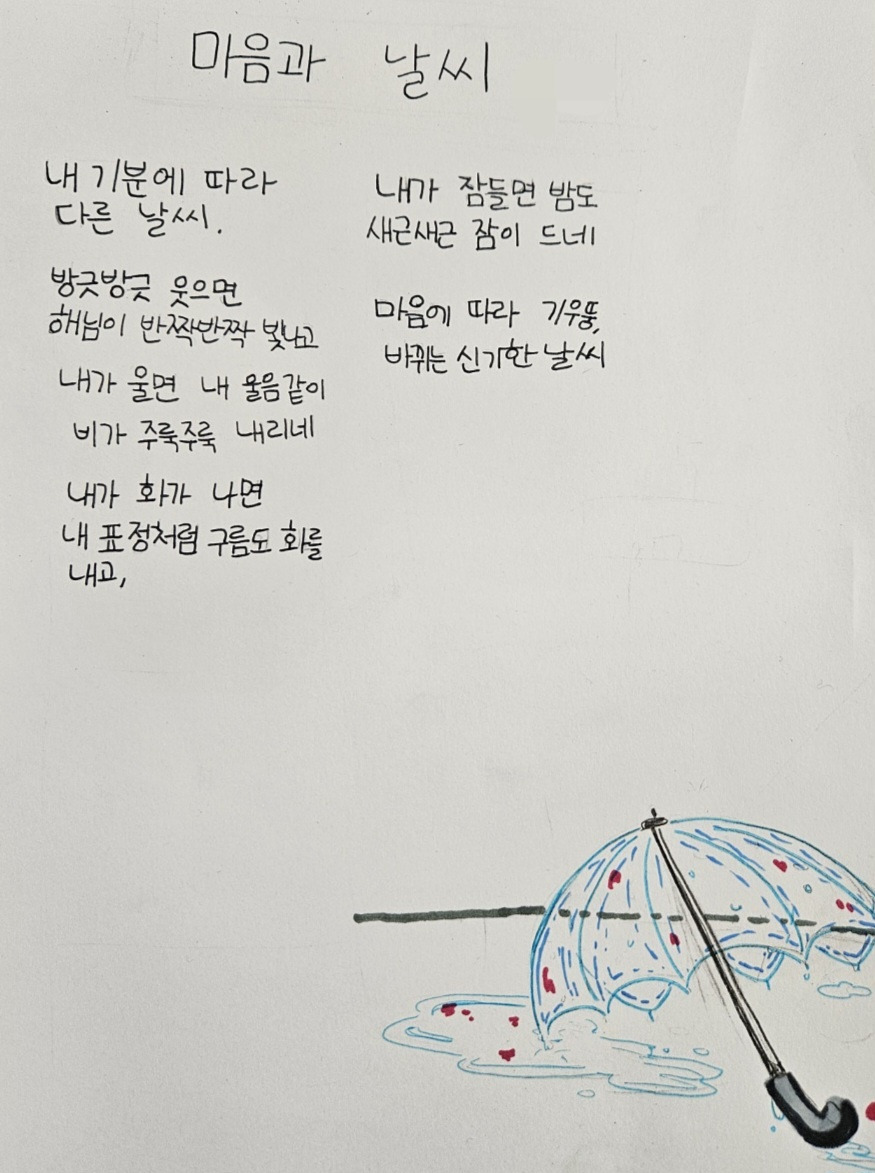 마음과 날씨
내 기분에 따라
다른 날씨.
방긋방긋 웃으면
해님이 반짝반짝 빛나고
내가 울면 내 울음같이
비가 주룩주룩 내리네
내가 화가 나면
내 표정처럼 구름도 화를
내고,
내가 잠들면 밤도
새근새근 잠이 드네
마음에 따라 기우뚱,
바뀌는 신기한 날씨